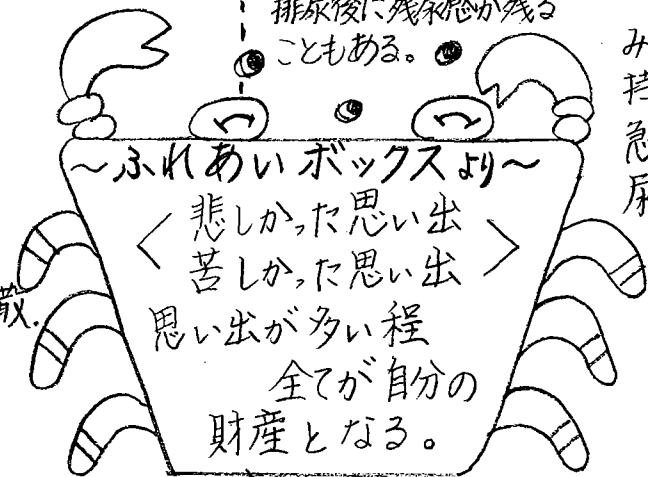 排尿後に残尿感が残る
こともある。
～ふれあいボックスより～
＜悲しかった思い出
苦しかった思い出＞
思い出が多い程
全てが自分の
財産となる。
散.
み
持
急
尿